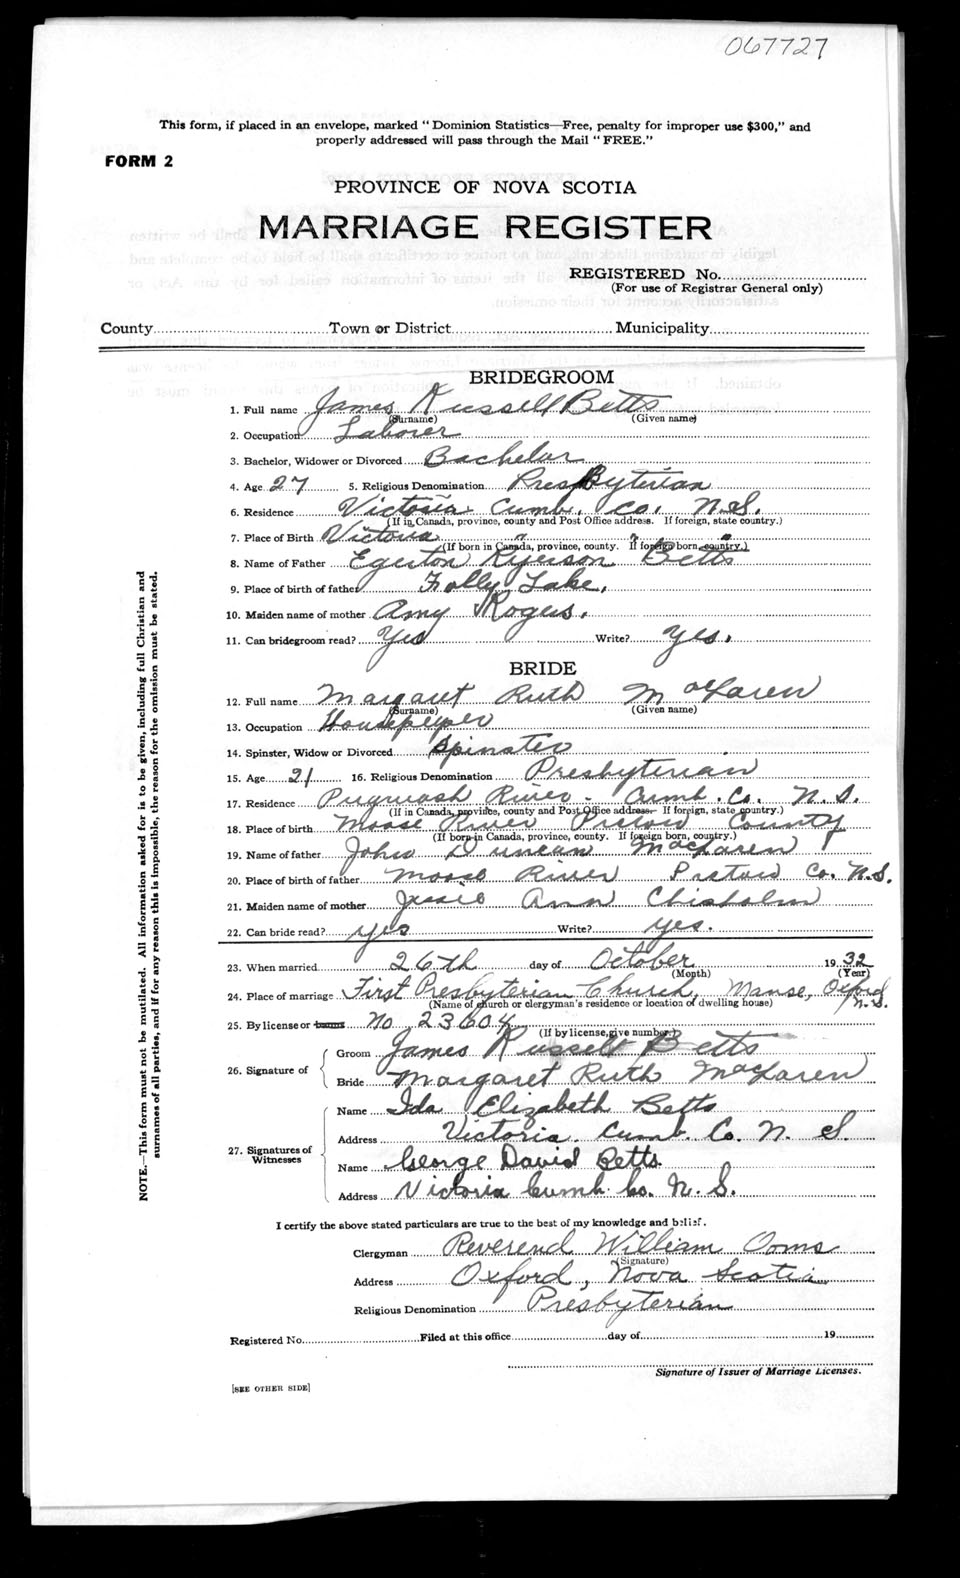 067727
This form, if placed in an envelope, marked "Dominion Statistics—Free, penalty for improper use $300," and
properly addressed will pass through the Mail "FREE."
FORM 2
PROVINCE OF NOVA SCOTIA
MARRIAGE REGISTER
REGISTERED No.
(For use of Registrar General only)
County Town or District Municipality
BRIDEGROOM
1. Full name James Russell Betts
(Surname) (Given name)
2. Occupation Laborer
3. Bachelor, Widower or Divorced Bachelor
4. Age 27 5. Religious Denomination Presbyterian
6. Residence Victoria Cumb. Co. N.S.
(If in Canada, province, county and Post Office address. If foreign, state country.)
7. Place of Birth Victoria " " "
(If born in Canada, province, county. If foreign born, country.)
8. Name of Father Egerton Ryerson Betts
9. Place of birth of father Folly Lake.
10. Maiden name of mother Amy Rogers.
11. Can bridegroom read? Yes Write? Yes.
BRIDE
12. Full name Margaret Ruth MacLaren
(Surname) (Given name)
13. Occupation Housekeeper
14. Spinster, Widow or Divorced Spinster
15. Age 21 16. Religious Denomination Presbyterian
17. Residence Pugwash River - Cumb. Co. N.S.
(If in Canada, province, county and Post Office address. If foreign, state country.)
18. Place of birth Moose River Pictou County
(If born in Canada, province, county. If foreign born, country.)
19. Name of father John Duncan MacLaren
20. Place of birth of father Moose River Pictou Co. N.S.
21. Maiden name of mother Jessie Ann Chisholm
22. Can bride read? yes Write? yes.
23. When married 26th day of October 1932
(Month) (Year)
24. Place of marriage First Presbyterian Church, Manse, Oxford N.S.
(Name of church or clergyman's residence or location of dwelling house)
25. By license or banns No 23604
(If by license, give number)
26. Signature of Groom James Russell Betts
Bride Margaret Ruth MacLaren
27. Signatures of Witnesses
Name Ida Elizabeth Betts
Address Victoria. Cumb. Co. N. S.
Name George David Betts.
Address Victoria Cumb. Co. N. S.
I certify the above stated particulars are true to the best of my knowledge and belief.
Clergyman Reverend William Ooms
(Signature)
Address Oxford, Nova Scotia
Religious Denomination Presbyterian
Registered No. Filed at this office day of 19
Signature of Issuer of Marriage Licenses.
[SEE OTHER SIDE]
NOTE.—This form must not be mutilated. All information asked for is to be given, including full Christian and
surnames of all parties, and if for any reason this is impossible, the reason for the omission must be stated.